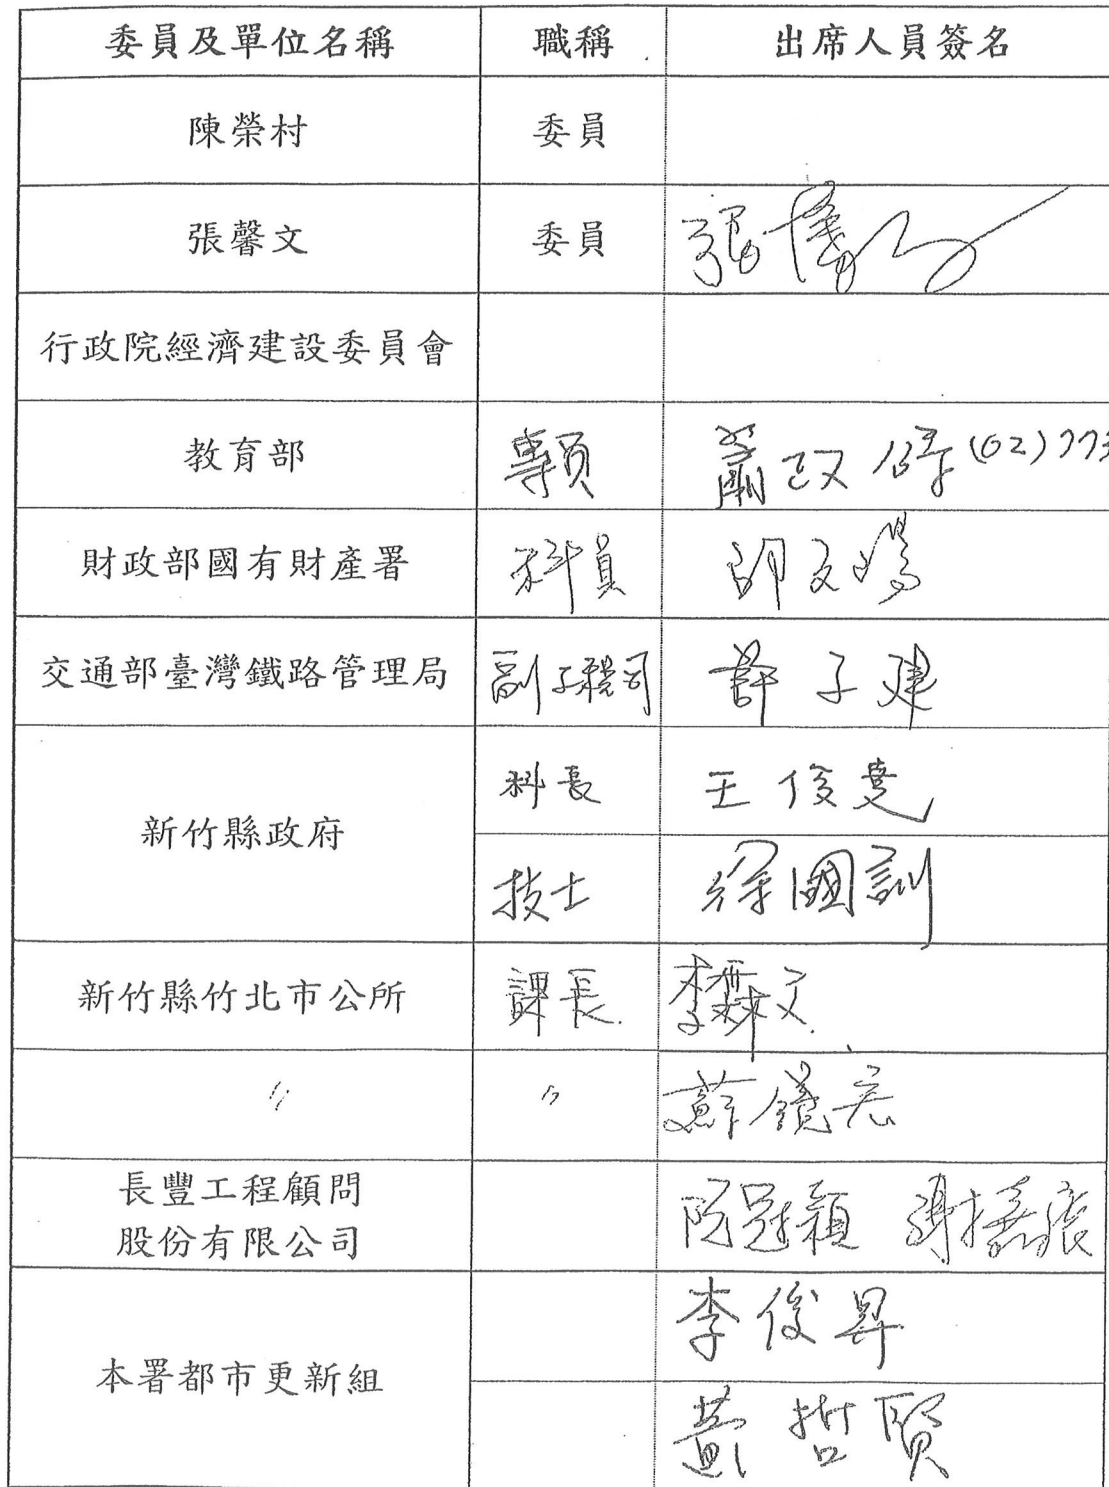 委員及單位名稱 職稱 出席人員簽名
陳榮村 委員
張馨文 委員 張馨文
行政院經濟建設委員會
教育部 專員 蕭政 (02)773
財政部國有財產署 科員 胡文
交通部臺灣鐵路管理局 副 司 許子建
新竹縣政府 科長 王俊堯
技士 徐國訓
新竹縣竹北市公所 課長. 李霖文.
〃 〃 蘇儀宏
長豐工程顧問 阮冠穎
股份有限公司
本署都市更新組 李俊昇
黃哲賢